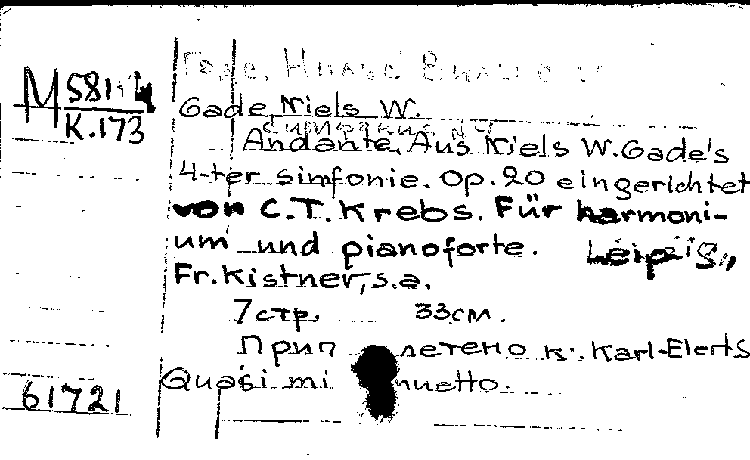 Гаде, Нильс Вильгельм
M 581
K.173
Gade, Niels W.
Andante. Aus Niels W. Gade's
4-ter sinfonie. Op. 20 eingerichtet
von C.T. Krebs. Für harmoni-
um und pianoforte. Leipzig,
Fr. Kistner, s.a.
7 стр. 33 см.
Приплетено к: Karl-Elerts
Quasi minuetto.
61721